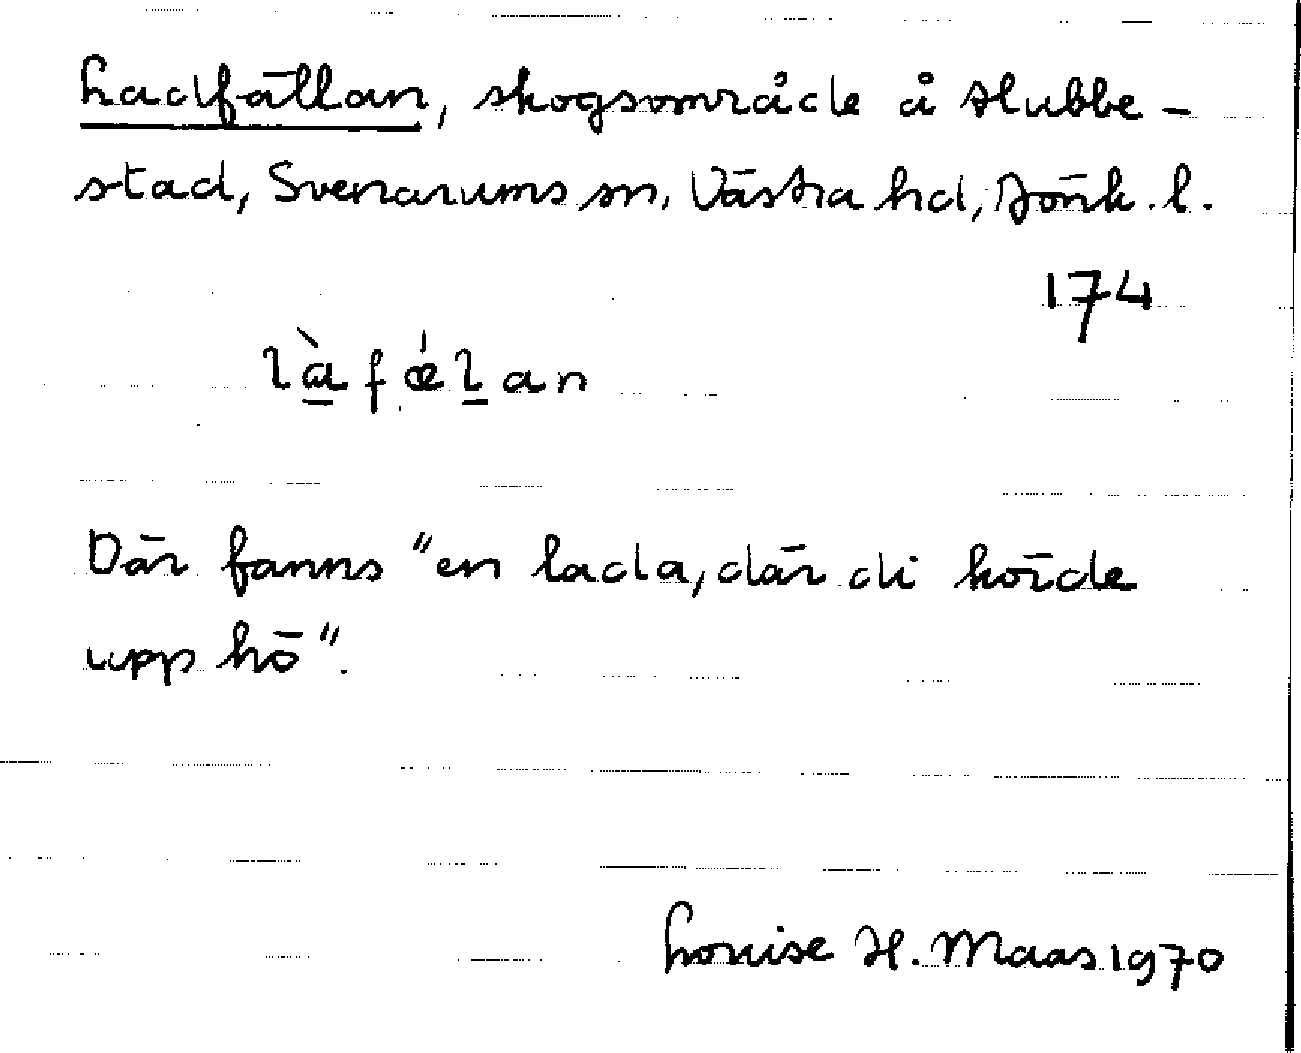 Ladfällan, skogsområde å Slubbe-
stad, Svenarums sn, Västra hd, Jönk. l.
174
là̱fǽḻan
Där fanns "en lada, där di körde
upp hö".
Louise H. Maas 1970